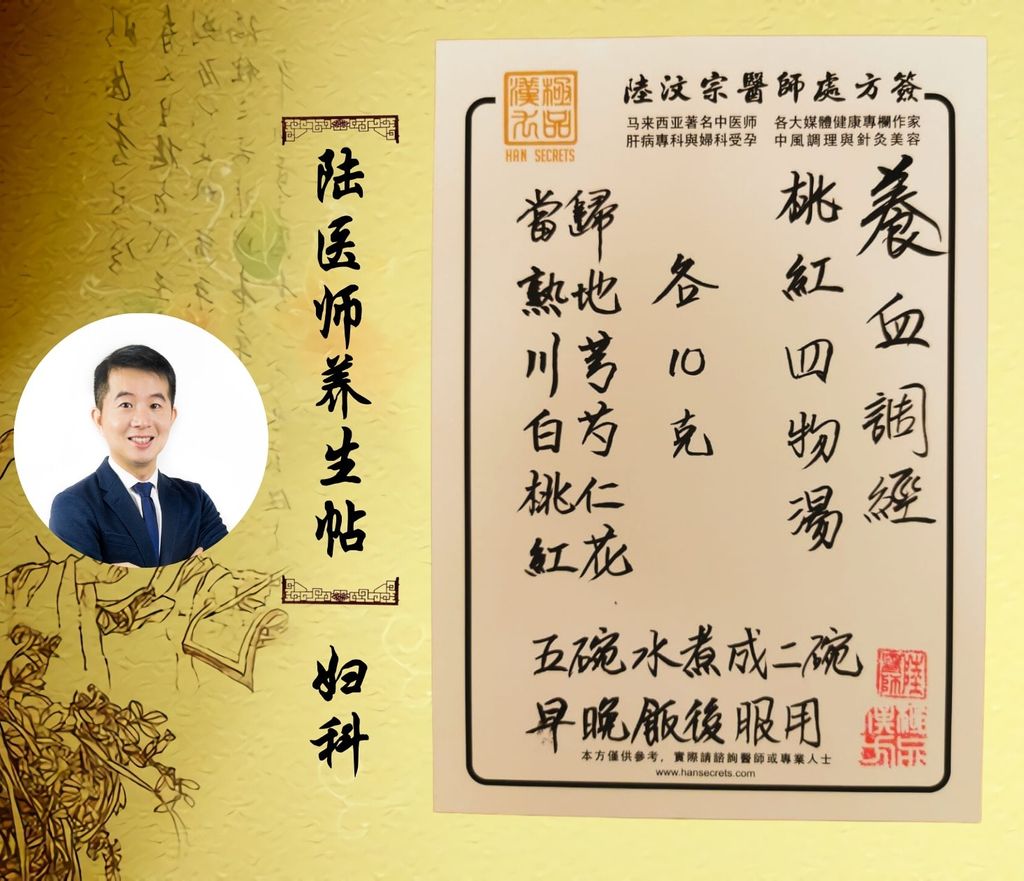 陆医师养生帖
妇科
漢方
極品
HAN SECRETS
陸汶宗醫師處方簽
马来西亚著名中医师 各大媒體健康專欄作家
肝病專科與婦科受孕 中風調理與針灸美容
養血調經
桃紅四物湯
各10克
當歸
熟地
川芎
白芍
桃仁
紅花
五碗水煮成二碗
早晚飯後服用
本方僅供參考，實際請諮詢醫師或專業人士
www.hansecrets.com
陸
醫師
極品
漢方